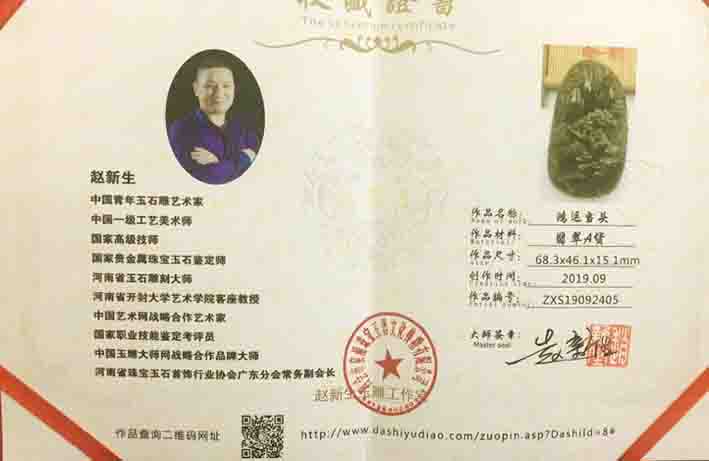 收藏證書
The collection certificate
赵新生
中国青年玉石雕艺术家
中国一级工艺美术师
国家高级技师
国家贵金属珠宝玉石鉴定师
河南省玉石雕刻大师
河南省开封大学艺术学院客座教授
中国艺术网战略合作艺术家
国家职业技能鉴定考评员
中国玉雕大师网战略合作品牌大师
河南省珠宝玉石首饰行业协会广东分会常务副会长
作品名称: 鸿运当头
Name of work:
作品材料: 翡翠A货
Material:
作品尺寸: 68.3x46.1x15.1mm
Size:
创作时间: 2019.09
Creation time:
作品编号: ZXS19092405
大師签章:
Master seal
赵新生玉雕工作室
作品查询二维码网址
http://www.dashiyudiao.com/zuopin.asp?DashiId=8#